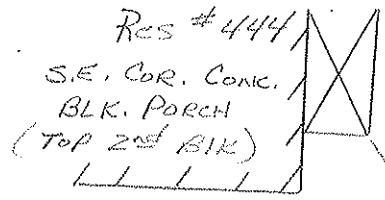 Res #444
S.E. COR. CONK.
BLK. PORCH
(TOP 2nd Blk)